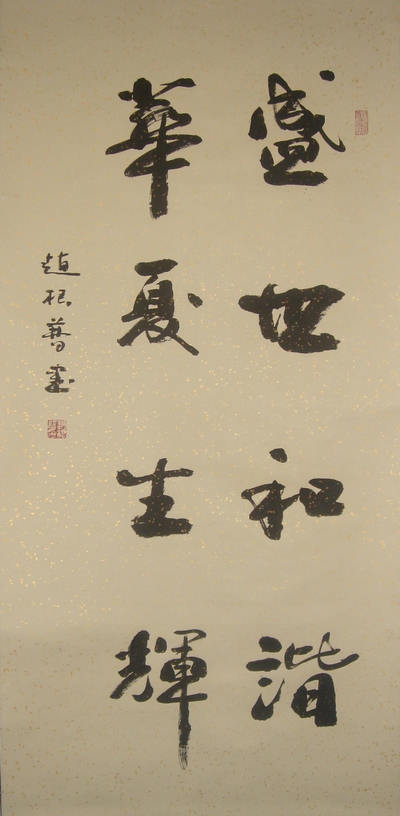 盛世和谐
華夏生輝
趙根普書